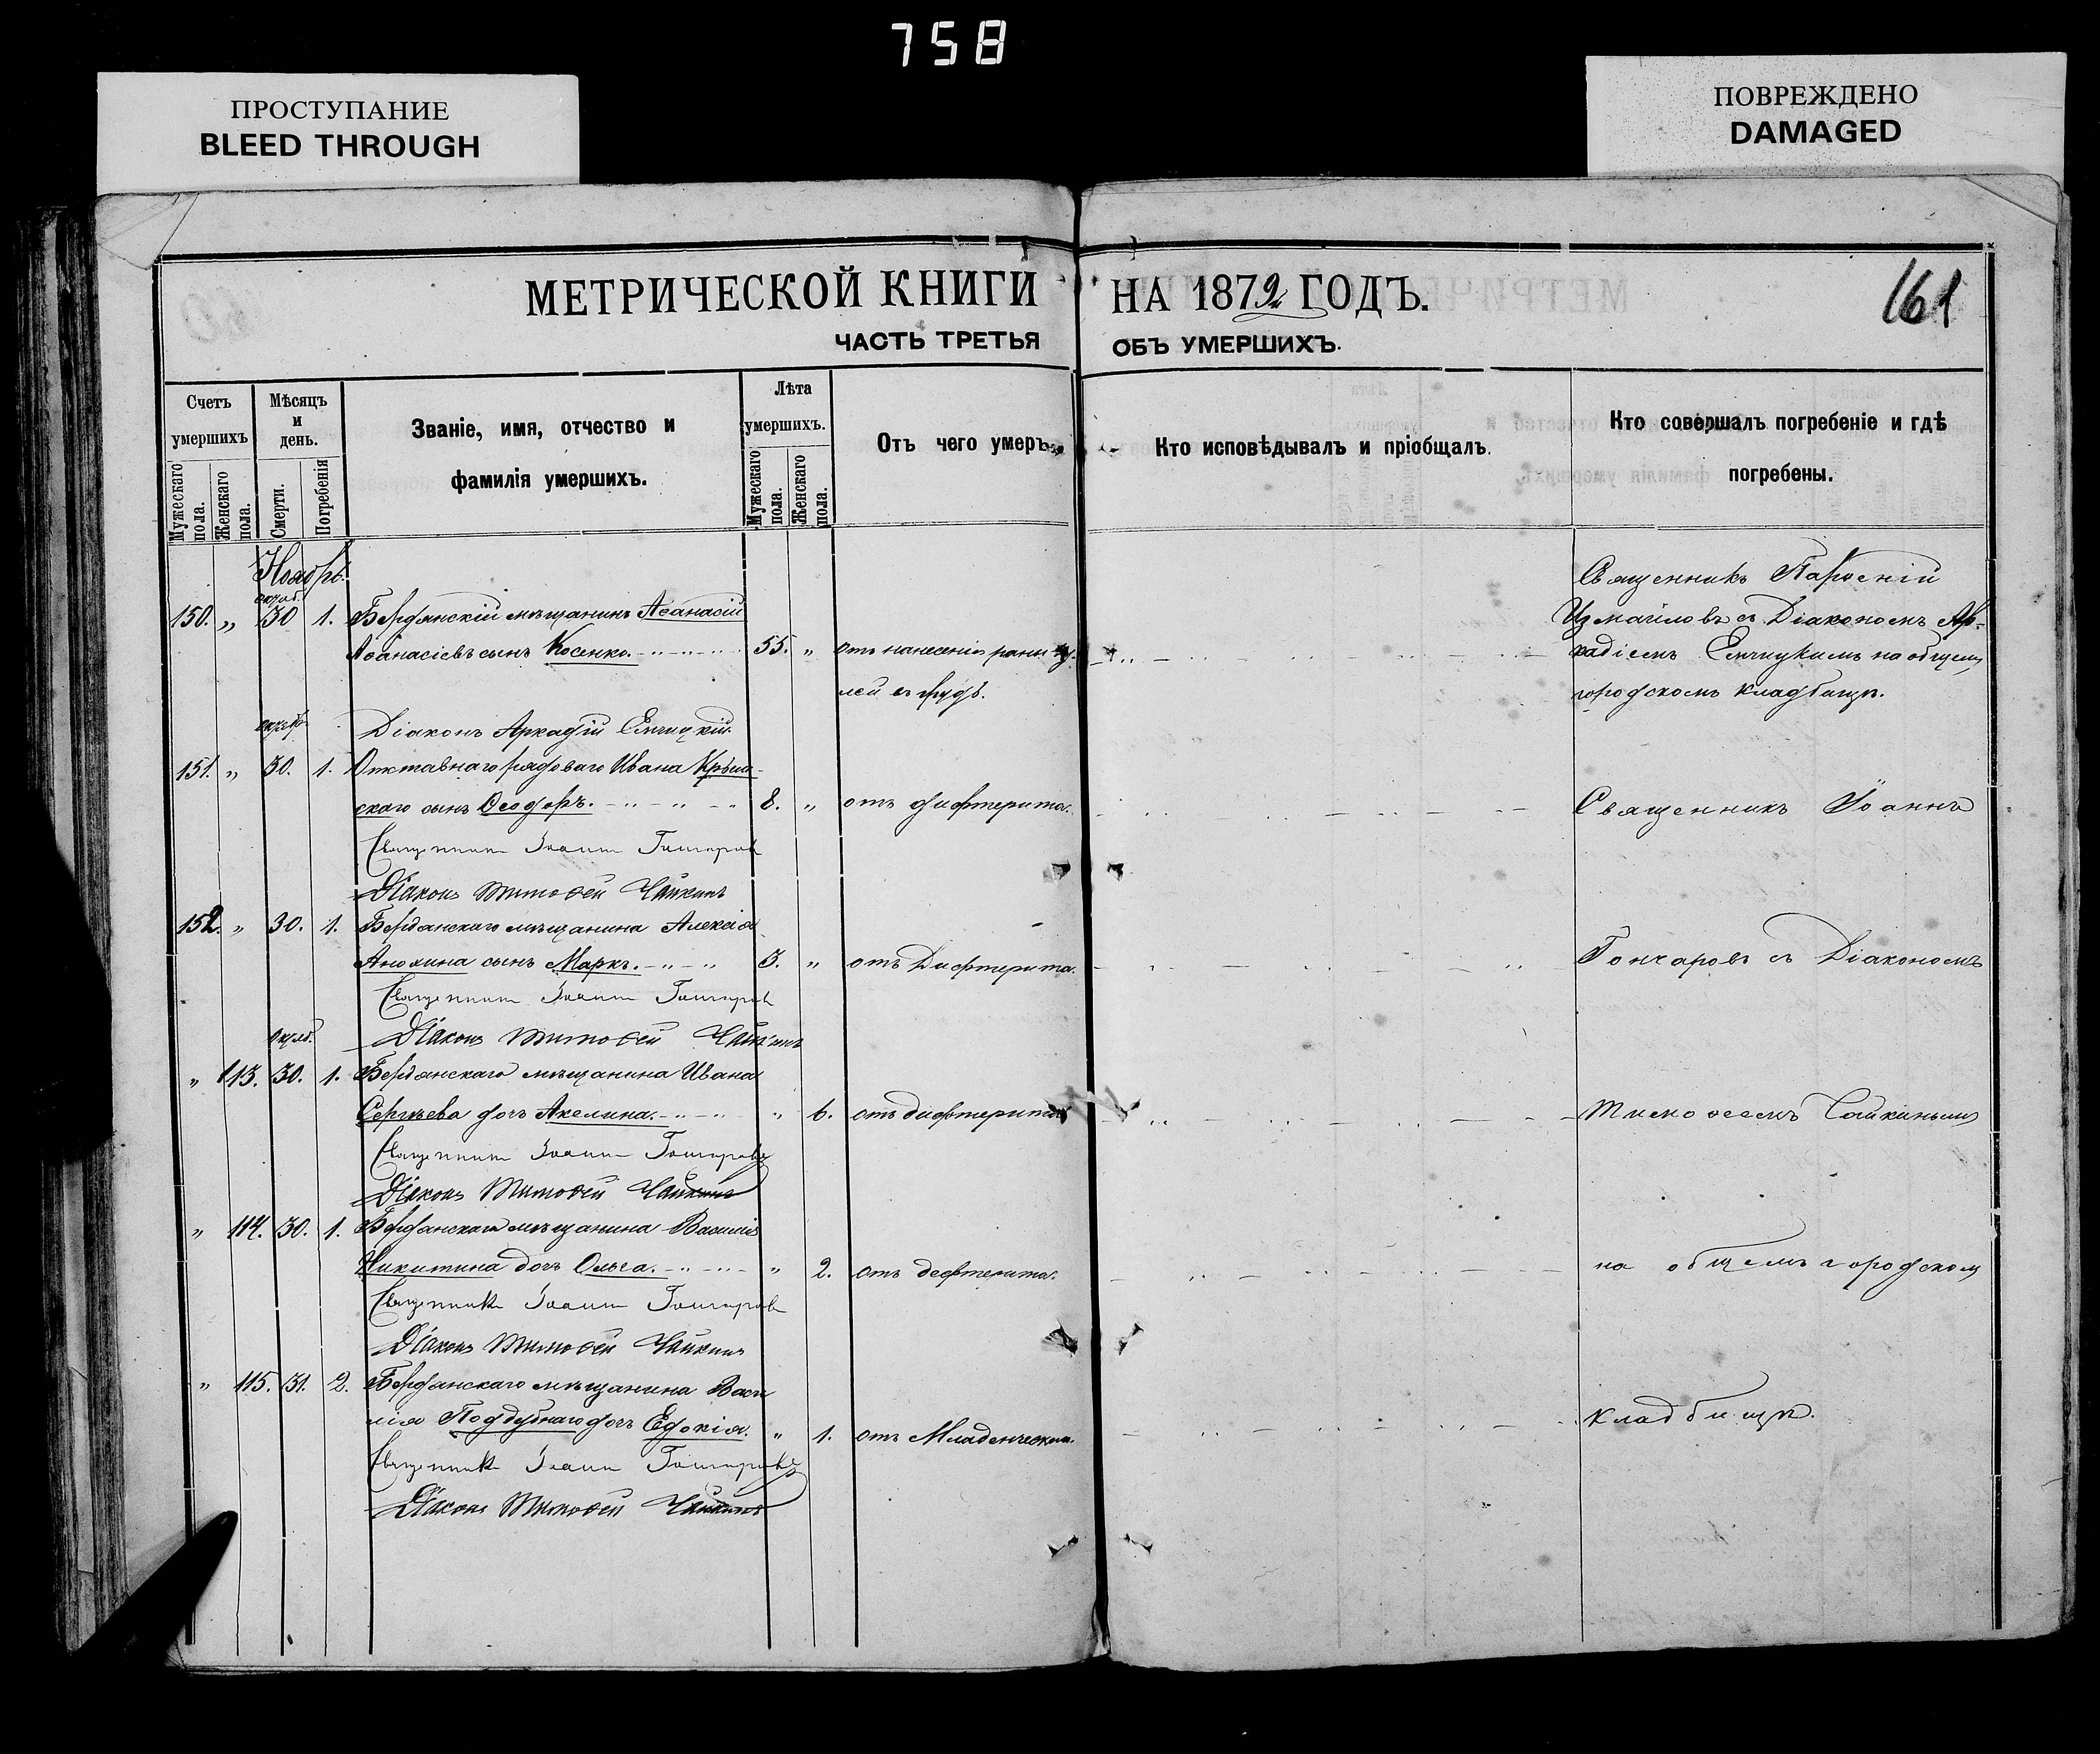 758
ПРОСТУПАНИЕ
BLEED THROUGH
ПОВРЕЖДЕНО
DAMAGED
МЕТРИЧЕСКОЙ КНИГИ НА 1872 ГОДЪ.
161
ЧАСТЬ ТРЕТЬЯ ОБЪ УМЕРШИХЪ.
Счетъ умершихъ
Мужескаго пола.
Женскаго пола.
Мѣсяцъ и день.
Смерти.
Погребенія
Званіе, имя, отчество и
фамилія умершихъ.
Лѣта умершихъ.
Мужескаго пола.
Женскаго пола.
Отъ чего умеръ.
Кто исповѣдывалъ и пріобщалъ.
Кто совершалъ погребеніе и гдѣ
погребены.
Ноябрь.
150. „ 30 1. Бердянскій мѣщанинъ Аѳанасій
Аѳанасіевъ сынъ Косенко. 55. „ отъ нанесенія раны
въ грудь.
Священникъ Парѳеній
Измайловъ съ Діакономъ Ар-
кадіемъ Емчицкимъ на общемъ
городскомъ кладбищѣ.
Діаконъ Аркадій Емчицкій.
151. „ 30. 1. Отставнаго рядоваго Ивана Крым-
скаго сынъ Ѳеодоръ. 8. „ отъ дифтерита.
Священникъ Іоаннъ
Священникъ Іоаннъ Гончаровъ
Діаконъ Тимоѳей Чайкинъ
152. „ 30. 1. Бердянскаго мѣщанина Алексія
Анохина сынъ Маркъ. 3. „ отъ Дифтерита.
Гончаровъ съ Діакономъ
Священникъ Іоаннъ Гончаровъ
Діаконъ Тимоѳей Чайкинъ
„ 113. 30. 1. Бердянскаго мѣщанина Ивана
Сергѣева дочь Акелина. „ 6. отъ дифтерита
Тимоѳеемъ Чайкинымъ
Священникъ Іоаннъ Гончаровъ
Діаконъ Тимоѳей Чайкинъ
„ 114. 30. 1. Бердянскаго мѣщанина Василія
Никитина дочь Ольга. „ 2. отъ дефтерита.
на общемъ городскомъ
Священникъ Іоаннъ Гончаровъ
Діаконъ Тимоѳей Чайкинъ
„ 115. 31. 2. Бердянскаго мѣщанина Васи
лія Поддубнаго дочь Едокія. „ 1. отъ Младенческой.
кладбищѣ.
Священникъ Іоаннъ Гончаровъ
Діаконъ Тимоѳей Чайкинъ